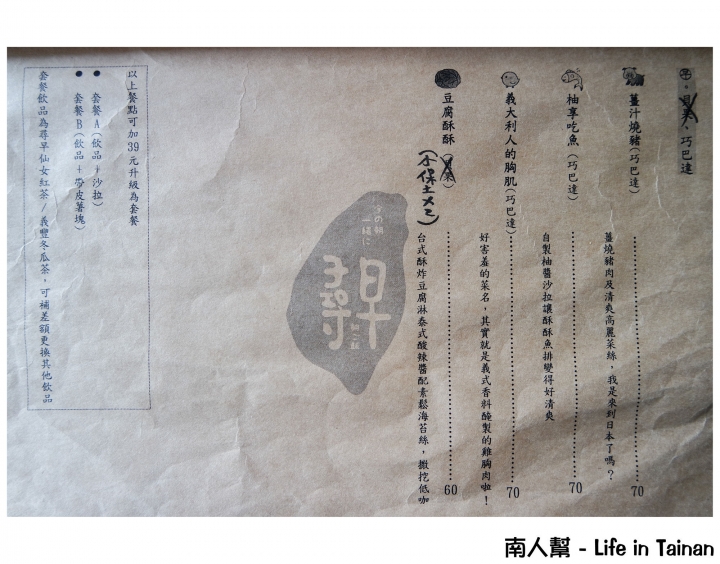 巧巴達
薑汁燒豬(巧巴達)
薑燒豬肉及清爽高麗菜絲，我是來到日本了嗎？
70
柚享吃魚(巧巴達)
自製柚醬沙拉讓酥酥魚排變得好清爽
70
義大利人的胸肌(巧巴達)
好害羞的菜名，其實就是義式香料醃製的雞胸肉啦！
70
豆腐酥酥
(木保土ㄨㄛ)
台式酥炸豆腐淋泰式酸辣醬配素鬆海苔絲，擬挖低咖
60
今の朝
一緒に
尋早
以上餐點可加39元升級為套餐
● 套餐A(飲品＋沙拉)
● 套餐B(飲品＋帶皮薯塊)
套餐飲品為尋早仙女紅茶/義豐冬瓜茶，可補差額更換其他飲品
南人幫 - Life in Tainan